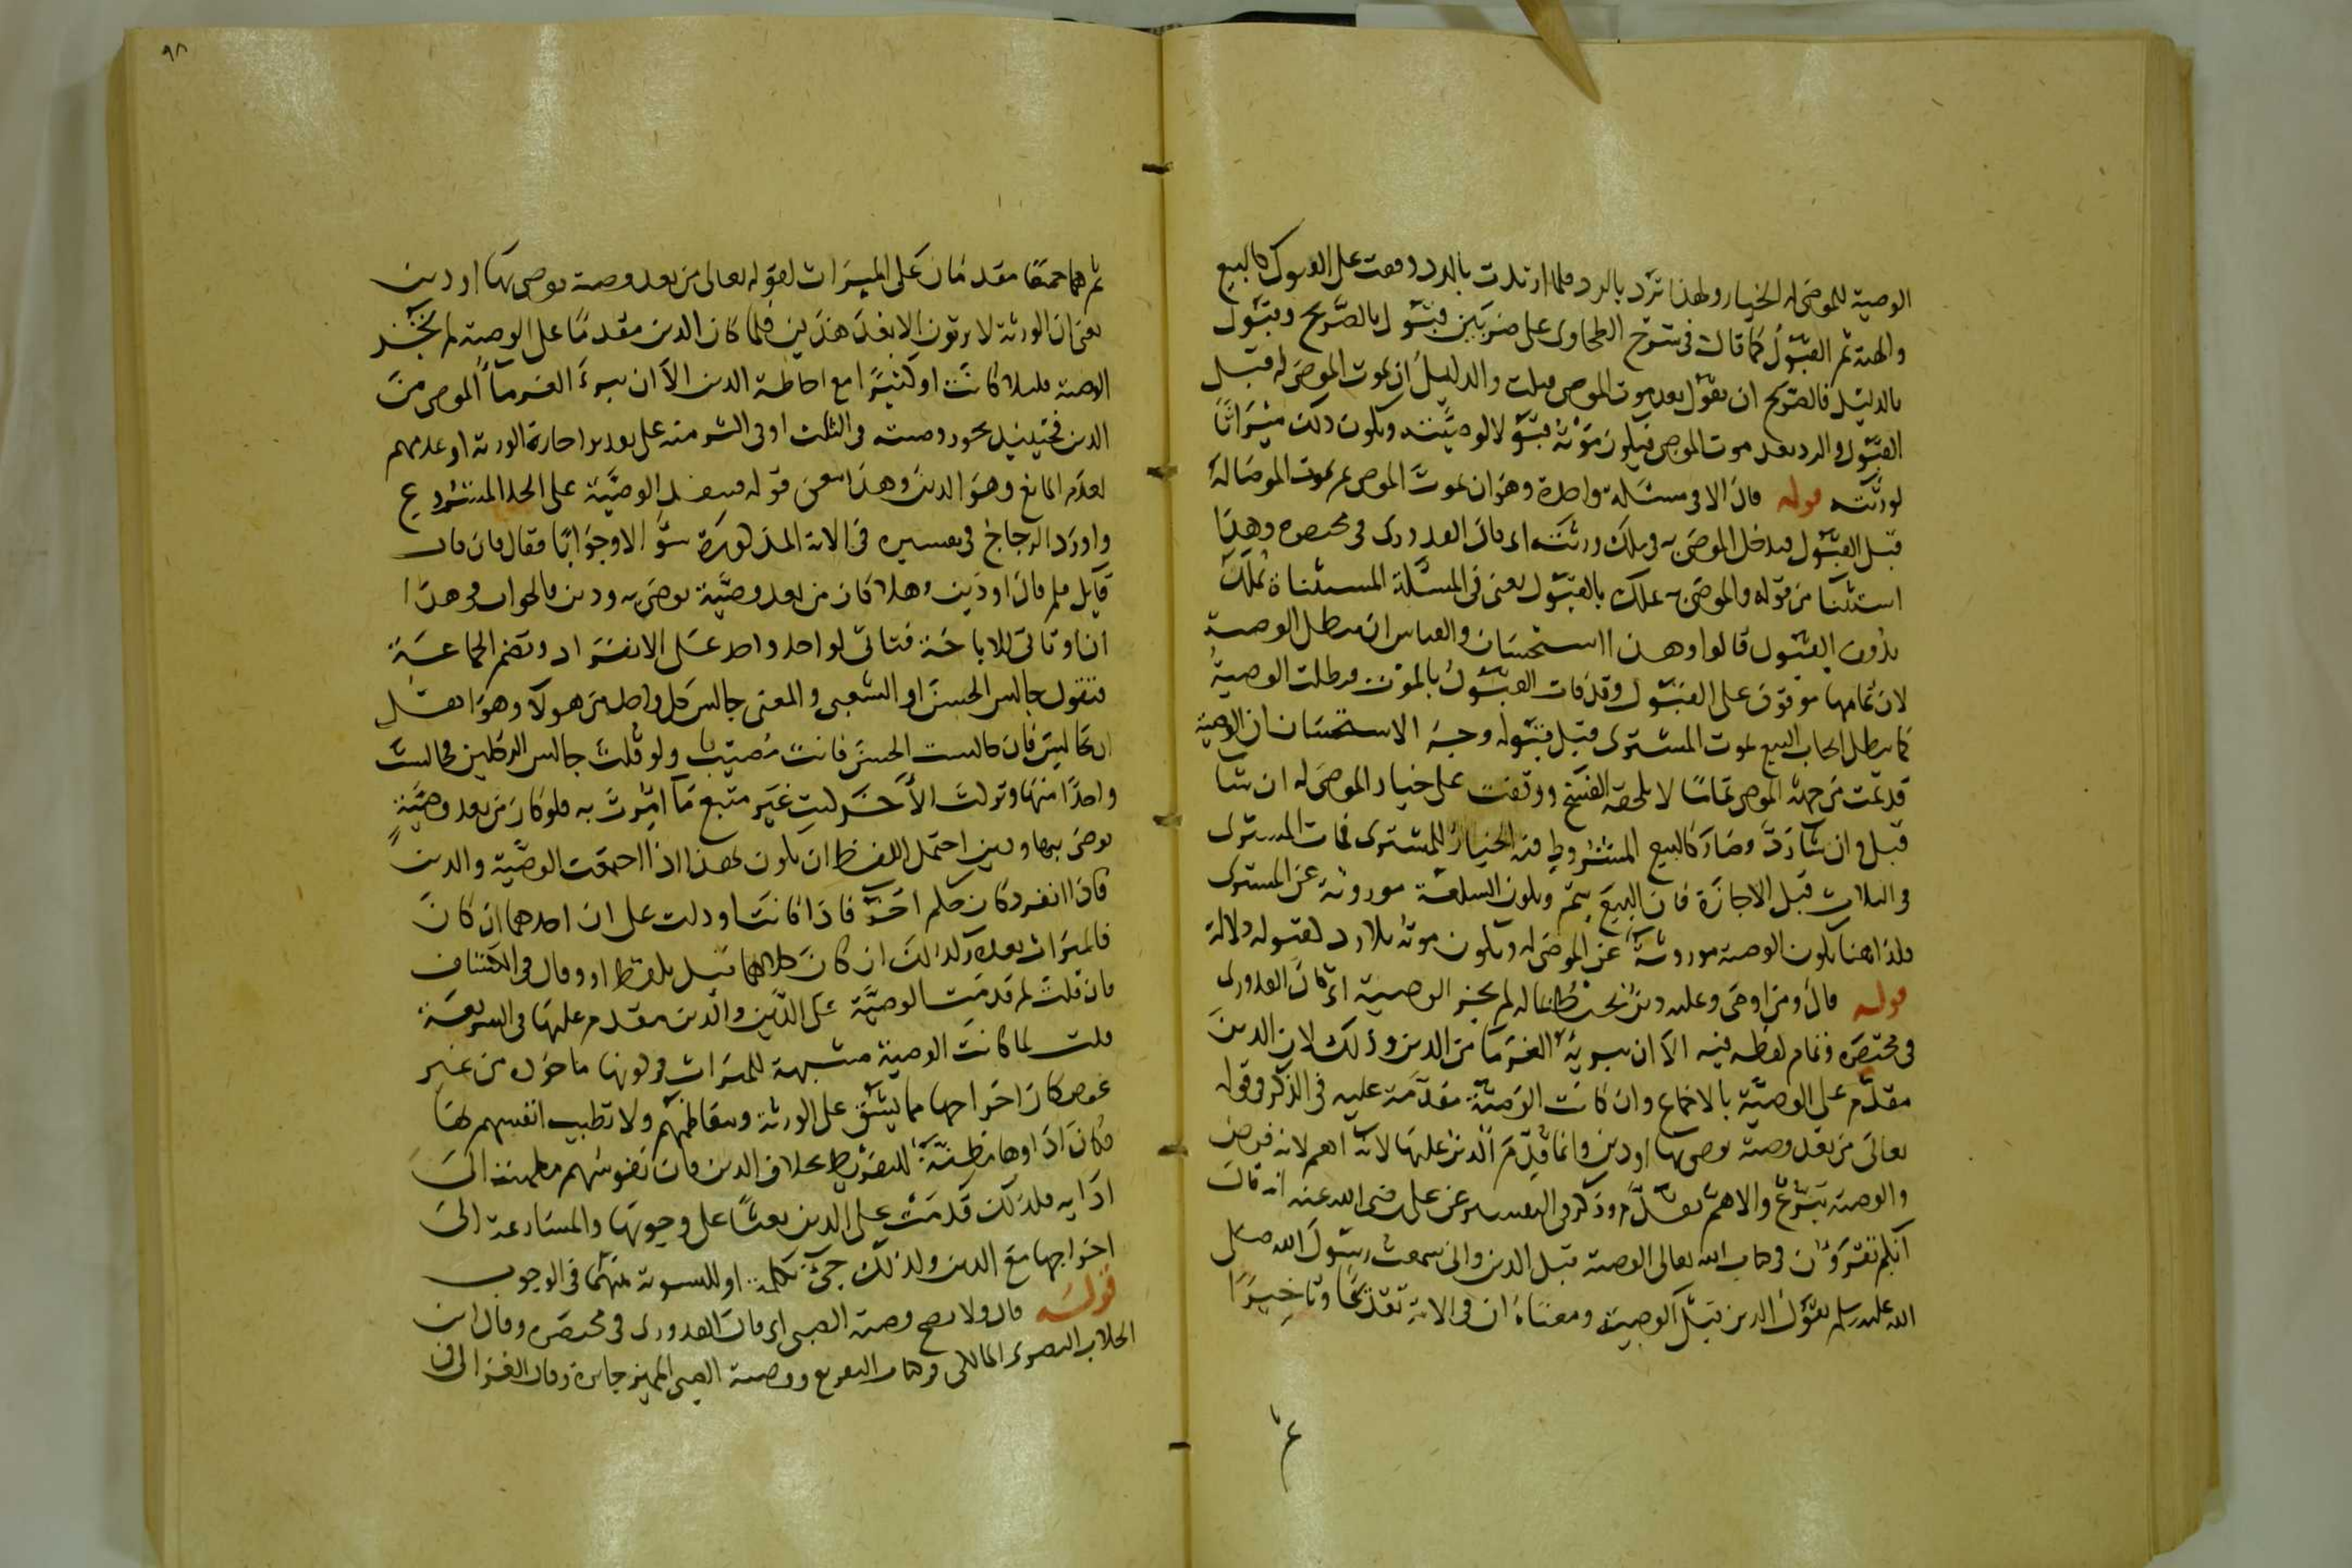 الوصية للموصى له الخيار ولهذا ترد بالرد فلما ارتدت بالرد وقعت على القبول كالبيع
والهبة ثم القبول كما قال في شرح الطحاوى على ضربين قبول بالصريح وقبول
بالدليل فالصريح ان يقول بعد موت الموصى قبلت والدليل ان يموت الموصى له قبل
القبول والرد بعد موت الموصى فيكون موته قبولا لوصيته ويكون ذلك ميراثا
لورثته قوله قال الا في مسئلة واحدة وهو ان يموت الموصى ثم يموت الموصا له
قبل القبول فيدخل الموصى به في ملك ورثته اى قال القدورى في مختصره وهذا
استثنا من قوله والموصى به يملك بالقبول يعنى في المسئلة المستثناة يملك
بدون القبول قالوا وهذا استحسان والقياس ان يبطل الوصية
لان تمامها موقوف على القبول وقد فات القبول بالموت فبطلت الوصية
كما يبطل ايجاب البيع بموت المشترى قبل قبوله وجه الاستحسان ان الوصية
قد تمت من جهة الموصى تماما لا يلحقه الفسخ ووقفت على خيار الموصى له ان شا
قبل وان شا رد وصار كالبيع المشروط فيه الخيار للمشترى فمات المشترى
في الثلاث قبل الاجازة فان البيع يتم ويكون السلعة موروثة عن المشترى
فكذا هنا يكون الوصية موروثة عن الموصى له ويكون موته بلا رد كقبوله دلالة
قوله قال ومن اوصى وعليه دين يحيط بماله لم يجز الوصية اى قال القدورى
في مختصره وتمام لفظه فيه الا ان يبريه الغرما من الدين وذلك لان الدين
مقدم على الوصية بالاجماع وان كانت الوصية مقدمة عليه في الذكر في قوله
تعالى من بعد وصية يوصى بها او دين وانما قدم الدين عليها لانه اهم لانه فرض
والوصية تبرع والاهم يقدم وذكر في التفسير عن على رضى الله عنه انه قال
انكم تقرؤن في كتاب الله تعالى الوصية قبل الدين وانى سمعت رسول الله صلى
الله عليه وسلم يقول الدين قبل الوصية ومعناه ان في الاية تقديما وتاخيرا
ثم
٩٨
ثم هما جميعا مقدمان على الميراث لقوله تعالى من بعد وصية يوصى بها او دين
يعنى ان الورثة لا يرثون الا بعد هذين فلما كان الدين مقدما على الوصية لم يجز
الوصية قليلا كانت او كثيرا مع احاطة الدين الا ان يبرء الغرما الموصى من
الدين فحينيذ يجوز وصيته في الثلث او في اكثر منه على تقدير اجازة الورثة او عدمهم
لعدم المانع وهو الدين وهذا معنى قوله فينفذ الوصية على الحد المشروع
واورد الزجاج في تفسيره في الاية المذكورة سؤالا وجوابا فقال فان قال
قايل فلم قال او دين وهلا كان من بعد وصية يوصى بها ودين فالجواب في هذا
ان او تاتى للاباحة فتاتى لواحد واحد على الانفراد وتضم الجماعة
فتقول جالس الحسن او الشعبى والمعنى جالس كل واحد من هولا وهو اهل
ان يجالس فان جالست الحسن فانت مصيب ولو قلت جالس الرجلين فجالست
واحدا منهما وتركت الاخر كنت غير متبع ما امرت به فلو كان من بعد وصية
يوصى بها ودين احتمل اللفظ ان يكون هذا اذا اجتمعت الوصية والدين
فاذا انفرد كان حكم اخر فاذا كانت او دلت على ان احدهما ان كان
فالميراث بعده وكذلك ان كان كلاهما قيل بلفظ او وقال في الكشاف
فان قلت لم قدمت الوصية على الدين والدين مقدم عليها في الشريعة
قلت لما كانت الوصية مشبهة للميراث في كونها ماخوذه من غير
عوض كان اخراجها مما يشق على الورثة ويتعاظمهم ولا تطيب انفسهم بها
فكان اداوها مظنة للتفريط بخلاف الدين فان نفوسهم مطمينة الى
ادايه فلذلك قدمت على الدين بعثا على وجوبها والمسارعة الى
اخراجها مع الدين ولذلك جىء بكلمة او للتسوية بينهما في الوجوب
قوله قال ولا يصح وصية الصبى اى قال القدورى في مختصره وقال ابن
الجلاب البصرى المالكى في كتاب التفريع ووصية الصبى المميز جايزة وقال الغزالى في